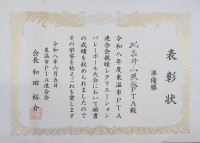 表彰状
準優勝
北吉井小学校PTA殿
令和八年度東温市PTA
連合会親睦レクリエーション
バレーボール大会において頭書
の成績を収められましたので
その栄誉を称えこれを表します
令和八年六月五日
東温市PTA連合会
会長 和田 裕介